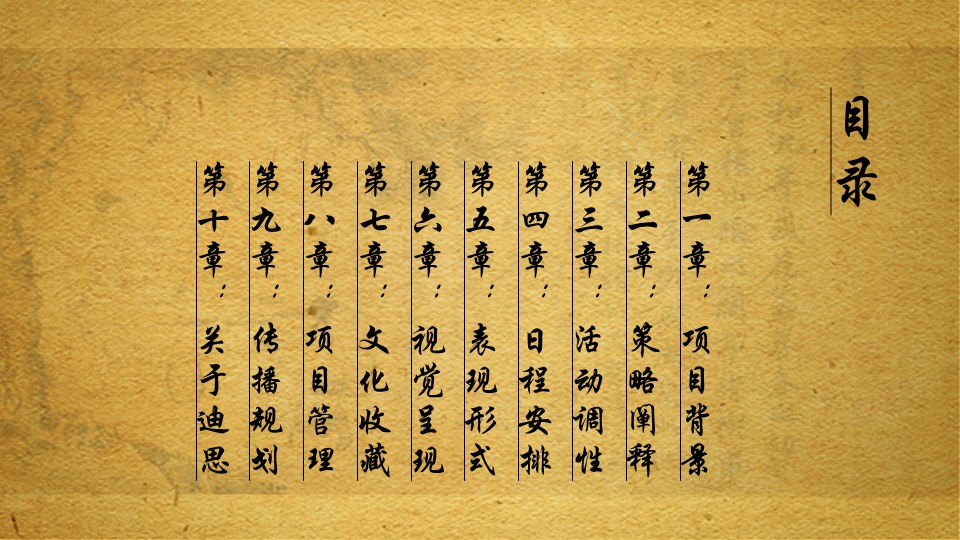 目录
第一章：项目背景
第二章：策略阐释
第三章：活动调性
第四章：日程安排
第五章：表现形式
第六章：视觉呈现
第七章：文化收藏
第八章：项目管理
第九章：传播规划
第十章：关于迪思